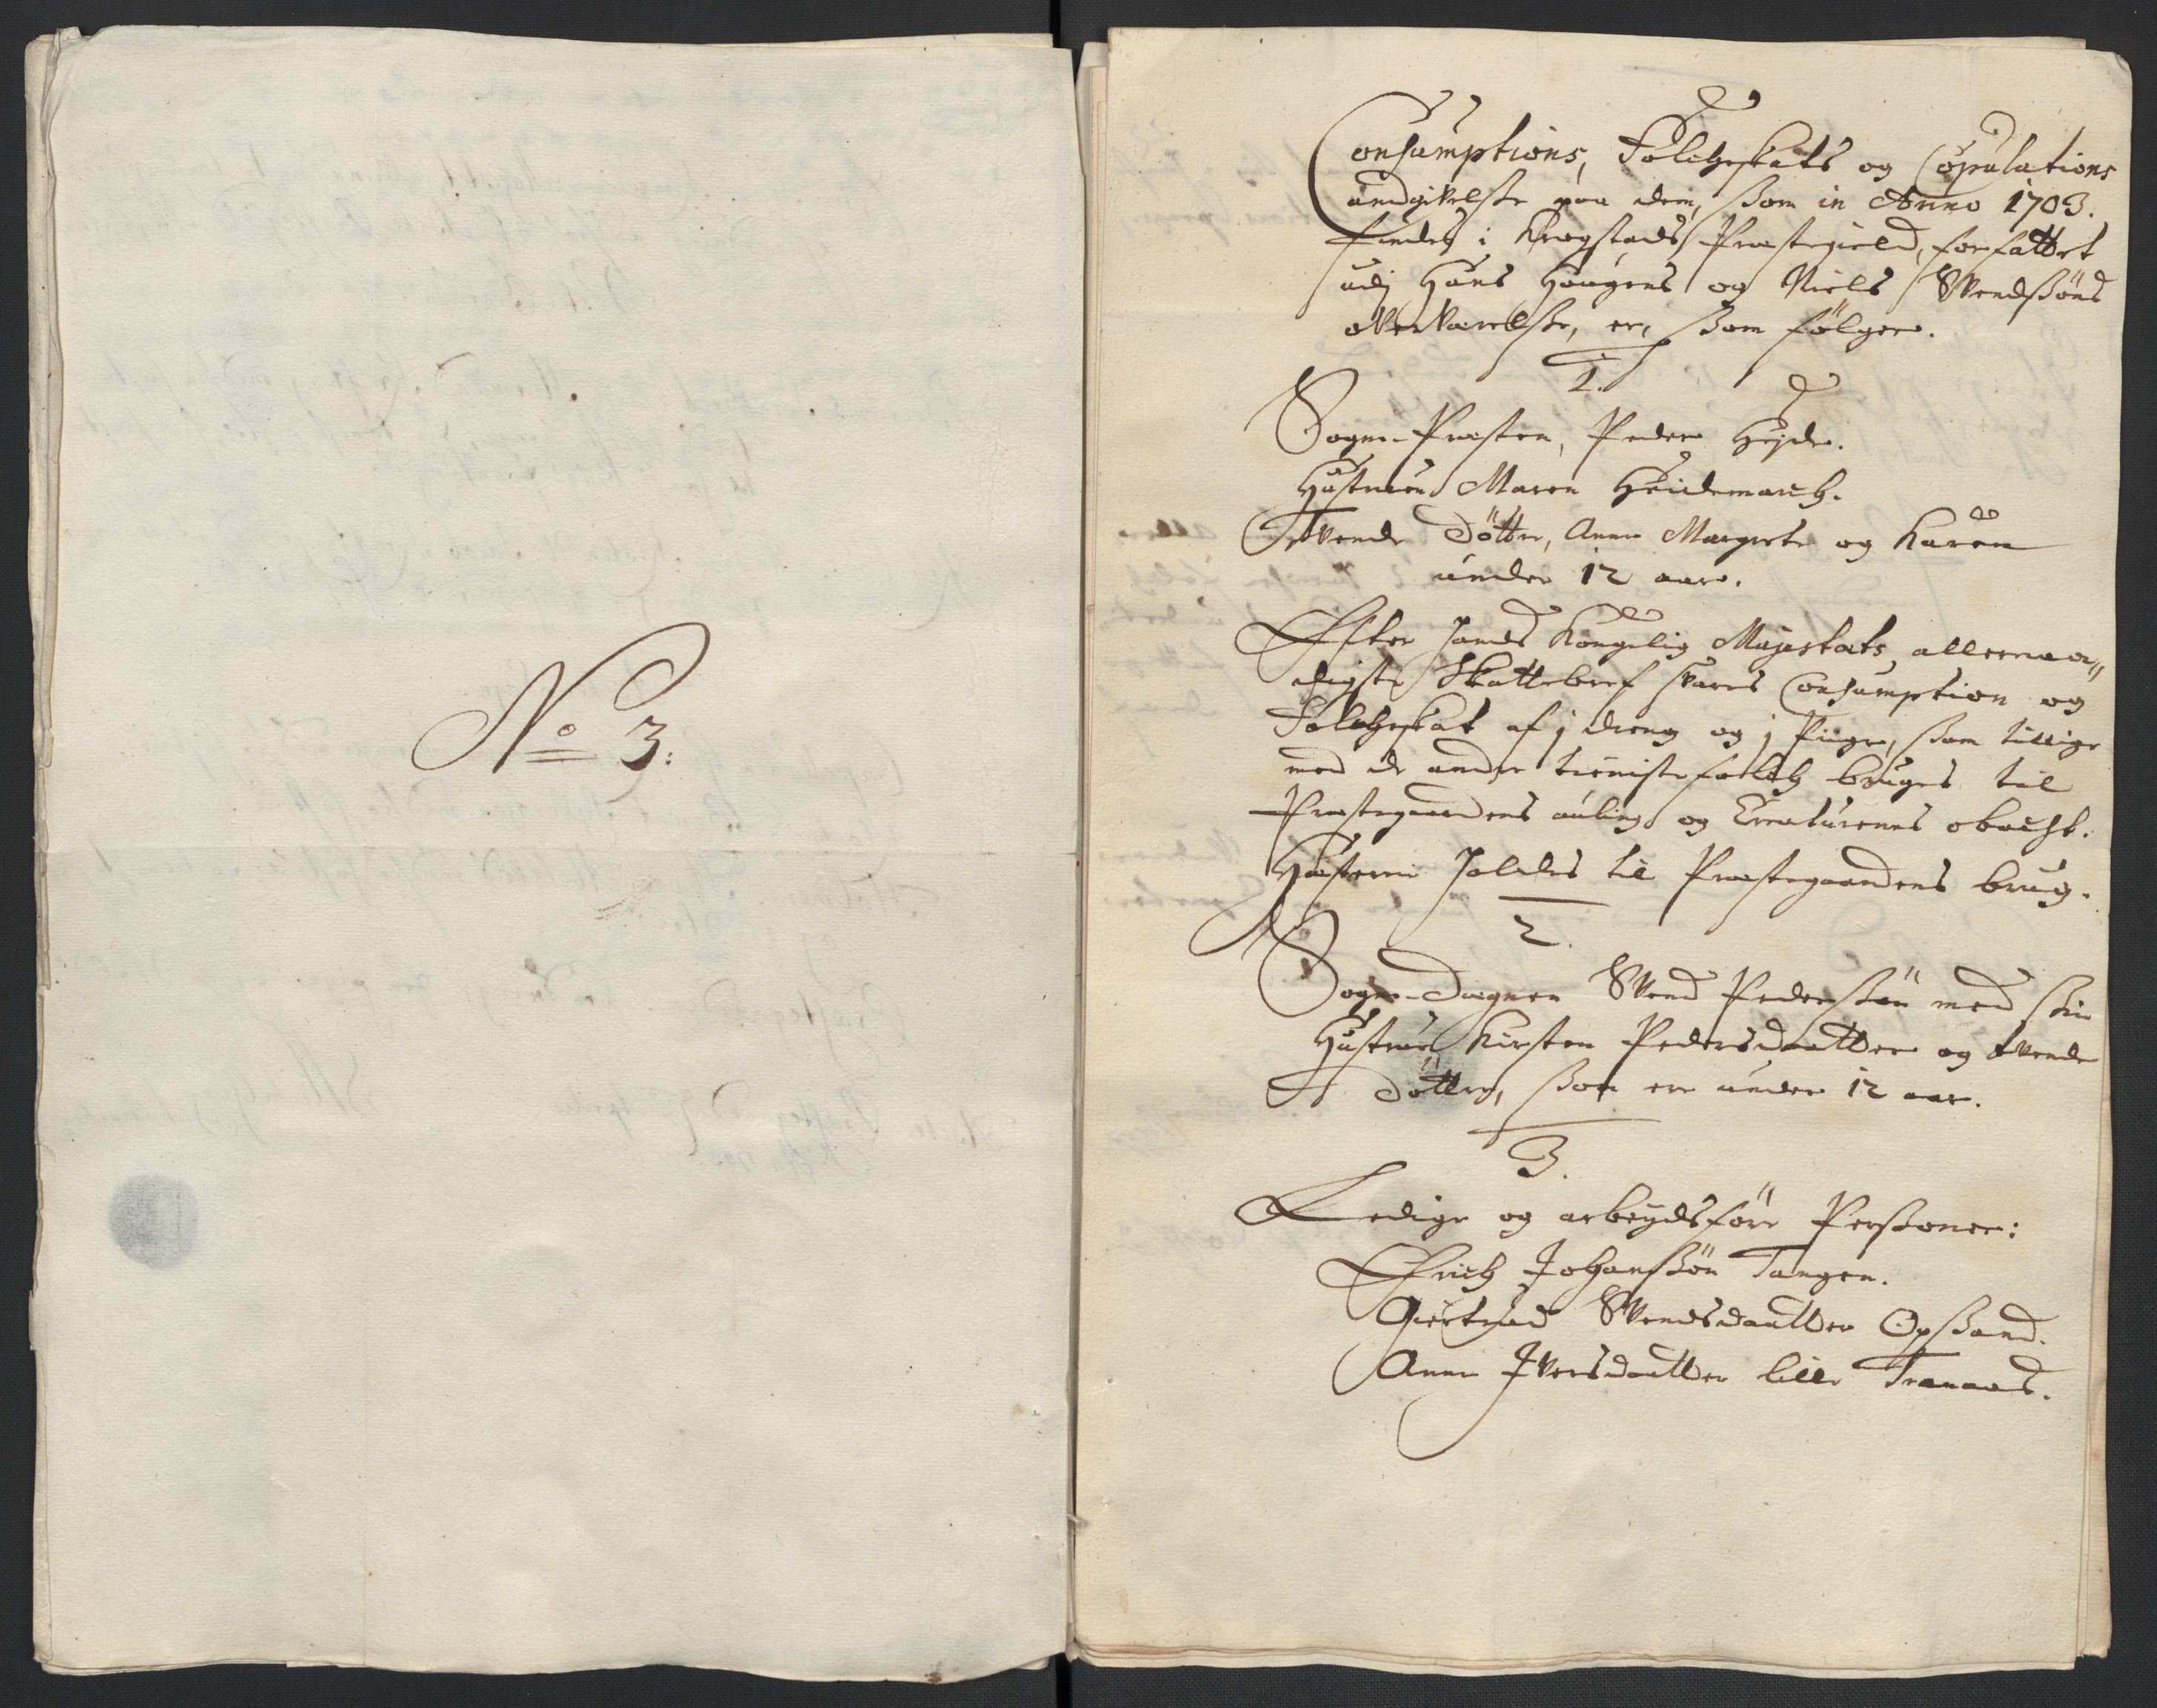 No 3:
Consumptions, Folcheskats og Copulations
andgivelse paa dem, som in Anno 1703.
findes i Krogstads Præstegield, forfattet
udj Hans Haugens og Niels Svendsöns
offverværelse, er, som fölger.
1.
Sogne-Præsten, Peder Hejde.
Hustruen Maren Heidemarch.
Tvende Döttre, Anne Margrete og Karen
under 12 aar.
Efter hans Kongelig Majestets allernaa"
digste Skattebref svares Consumption og
Folcheskat af j dreng og j Piige, som tillige
med de andre tienistefolch bruges til
Præstegaardens auling og Creaturenes obacht.
Hæstene holdes til Præstegaardens brug.
2.
Sogne-Degnen Svend Pedersön med sin
Hustrue Kirsten Pedersdaatter og tvende
Döttre, som ere under 12 aar.
3.
Ledige og arbeydsföre Personer:
Erich Johansön Tangen.
Giertrud Svendsdaatter Opsand.
Anne Iversdaatter lille Tranaas.